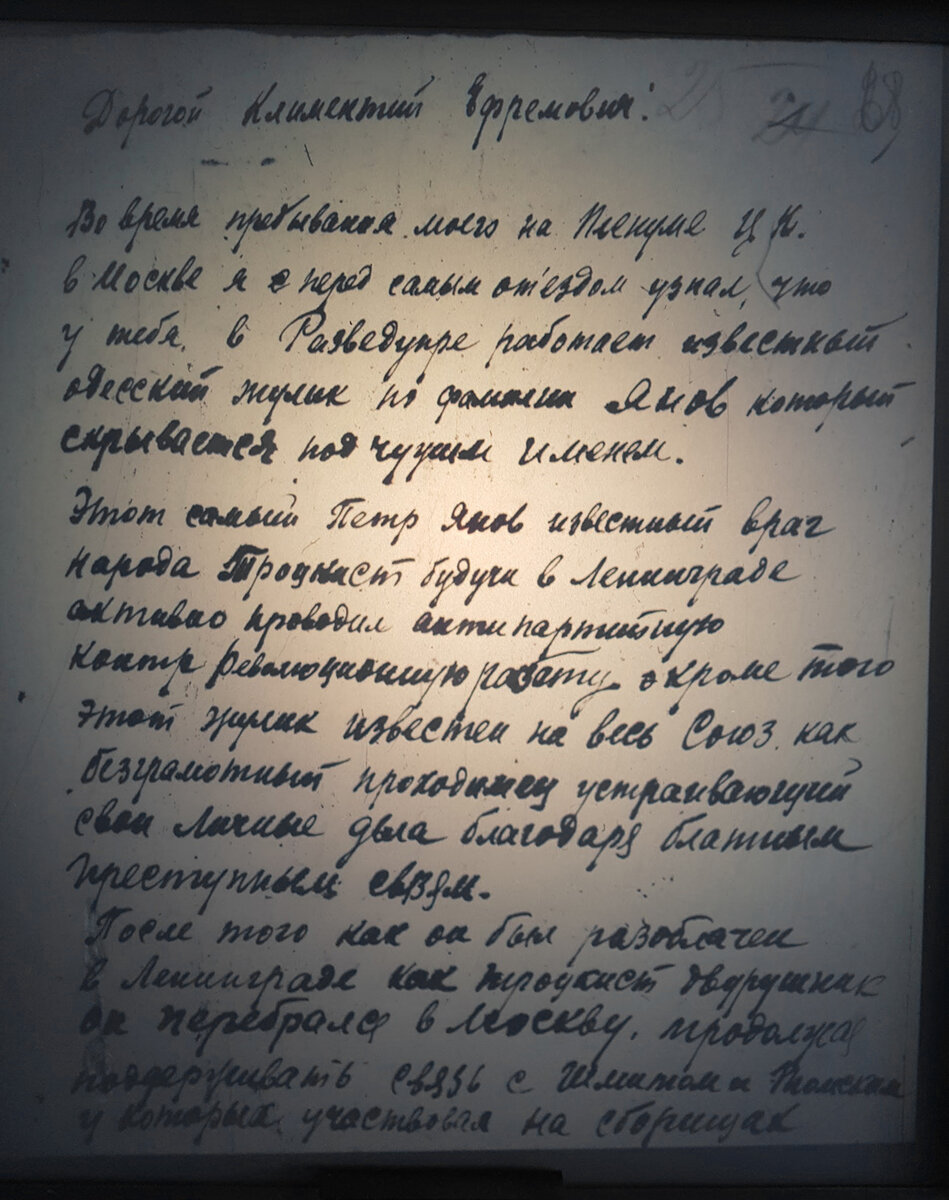 Дорогой Климентий Ефремович! 25 24 68
Во время пребывания моего на Пленуме Ц К.
в Москве я с перед самым от'ездом узнал, что
у тебя, в Разведупре работает известный
одесский жулик по фамилии Янов который
скрывается под чужим именем.
Этот самый Петр Янов известный враг
народа Троцкист будучи в Ленинграде
активно проводил антипартийную
контр революционную работу, а кроме того
Этот жулик известен на весь Союз, как
безграмотный проходимец устраивающий
свои личные дела благодаря блатным
преступным связям.
После того как он был разоблачен
в Ленинграде как троцкист двурушник
он перебрался в Москву, продолжая
поддерживать связь с Шмитом и
у которых участвовал на сборищах